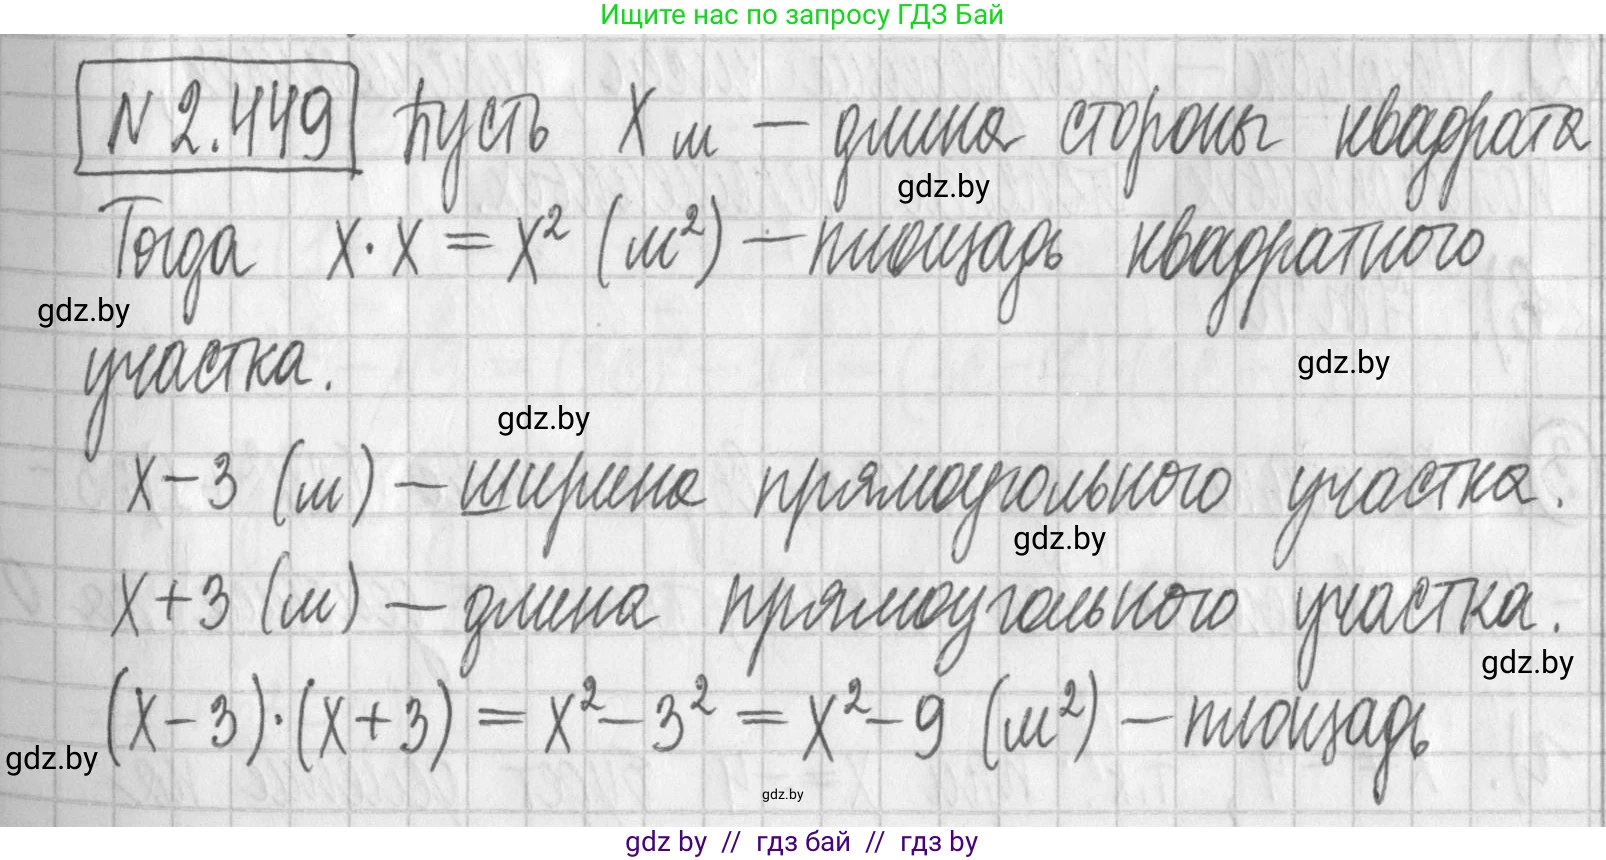 Ищите нас по запросу ГДЗ Бай
N 2.449 Пусть x м – длина стороны квадрата
gdz.by
Тогда x·x = x² (м²) – площадь квадратного
gdz.by
участка.
gdz.by
gdz.by
x – 3 (м) – ширина прямоугольного участка.
gdz.by
x + 3 (м) – длина прямоугольного участка.
gdz.by
(x – 3)·(x + 3) = x² – 3² = x² – 9 (м²) – площадь
gdz.by
gdz.by
gdz by // гдз бай // gdz by